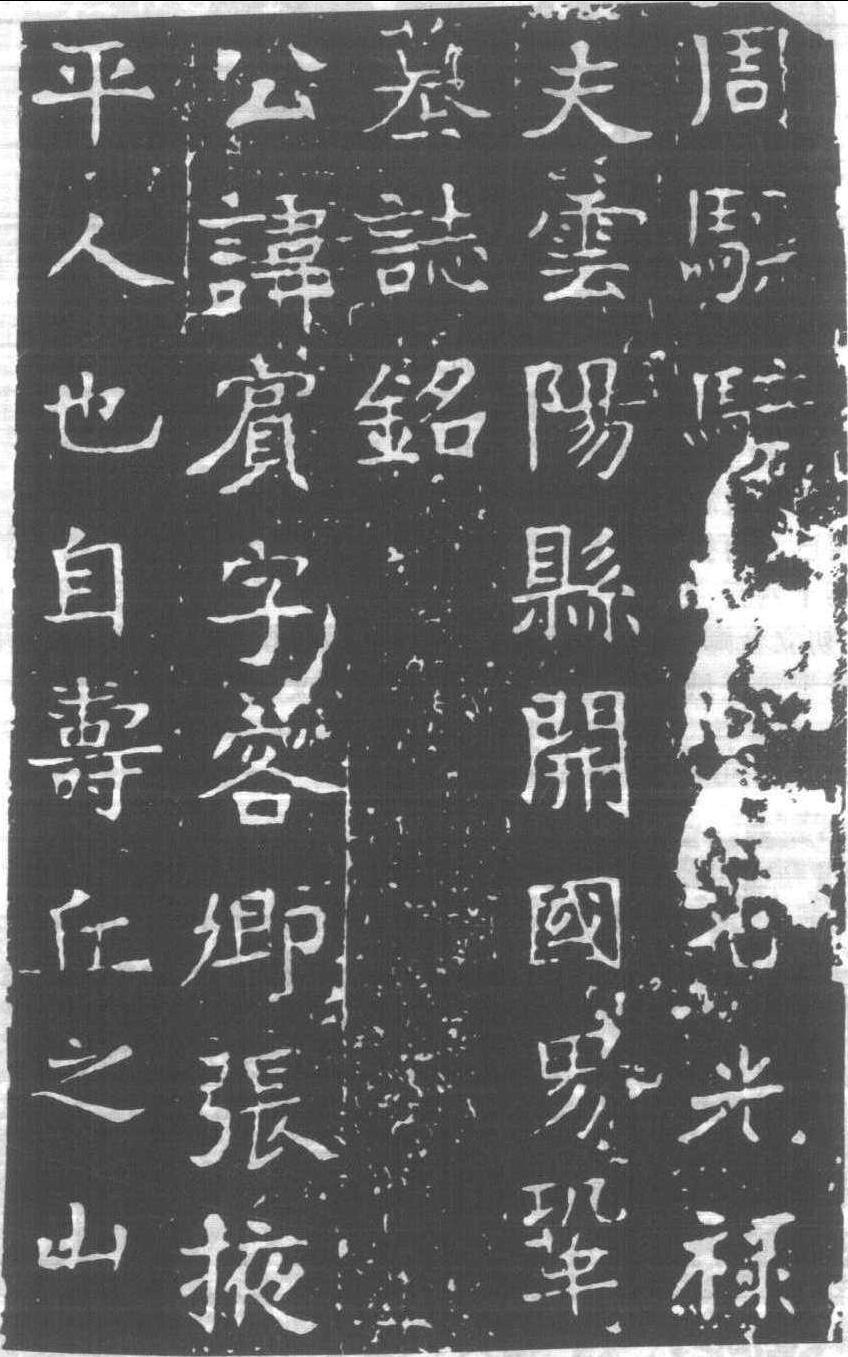 周驃騎光祿
夫雲陽縣開國男鞏
墓誌銘
公諱賓字客卿張掖
平人也自壽丘之山